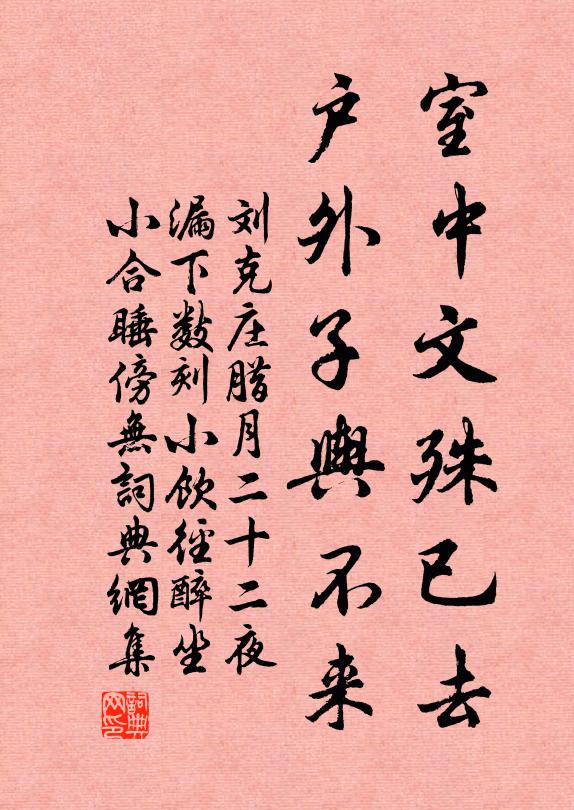 室中文殊已去
户外子輿不来
刘克庄腊月二十二夜
漏下数刻小飲徑醉坐
小合睡傍無詞典網集
詞典
网印